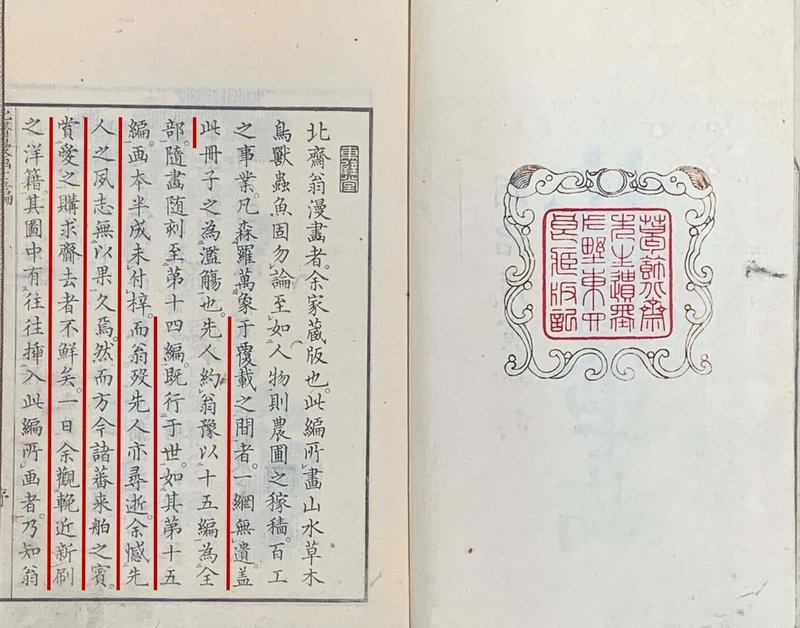 葛飾北齋
先生遺墨
片野東四
北齋翁漫畫者。余家蔵版也。此編所畫山水草木
鳥獸蟲魚固勿論至如人物則農圃之稼穡。百工
之事業。凡森羅萬象于覆載之間者。一網無遺。蓋
此冊子之為濫觴也。先人約翁豫以十五編為全
部。隨畫随刻至第十四編。既行于世。如其第十五
編。画本半成未付梓。而翁歿先人亦尋逝。余憾先
人之夙志無以果久焉。然而方今諸蕃来舶之賓。
賞愛之購求齎去者不鮮矣。一日余觀輓近新刷
之洋籍。其圖中有往往揷入此編所画者。乃知翁
序